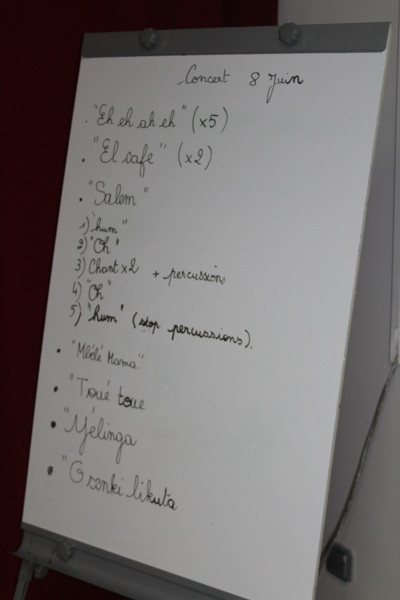 Concert 8 Juin
. "Eh eh ah eh" (x5)
. "El cafe" (x2)
. "Salem"
1) "hum"
2) "Oh"
3) Chant x2 + percussions
4) "Oh"
5) "hum" (stop percussions).
. "Mbélé Mama"
. "Toué toue
. "Yélinga
. "G likuta